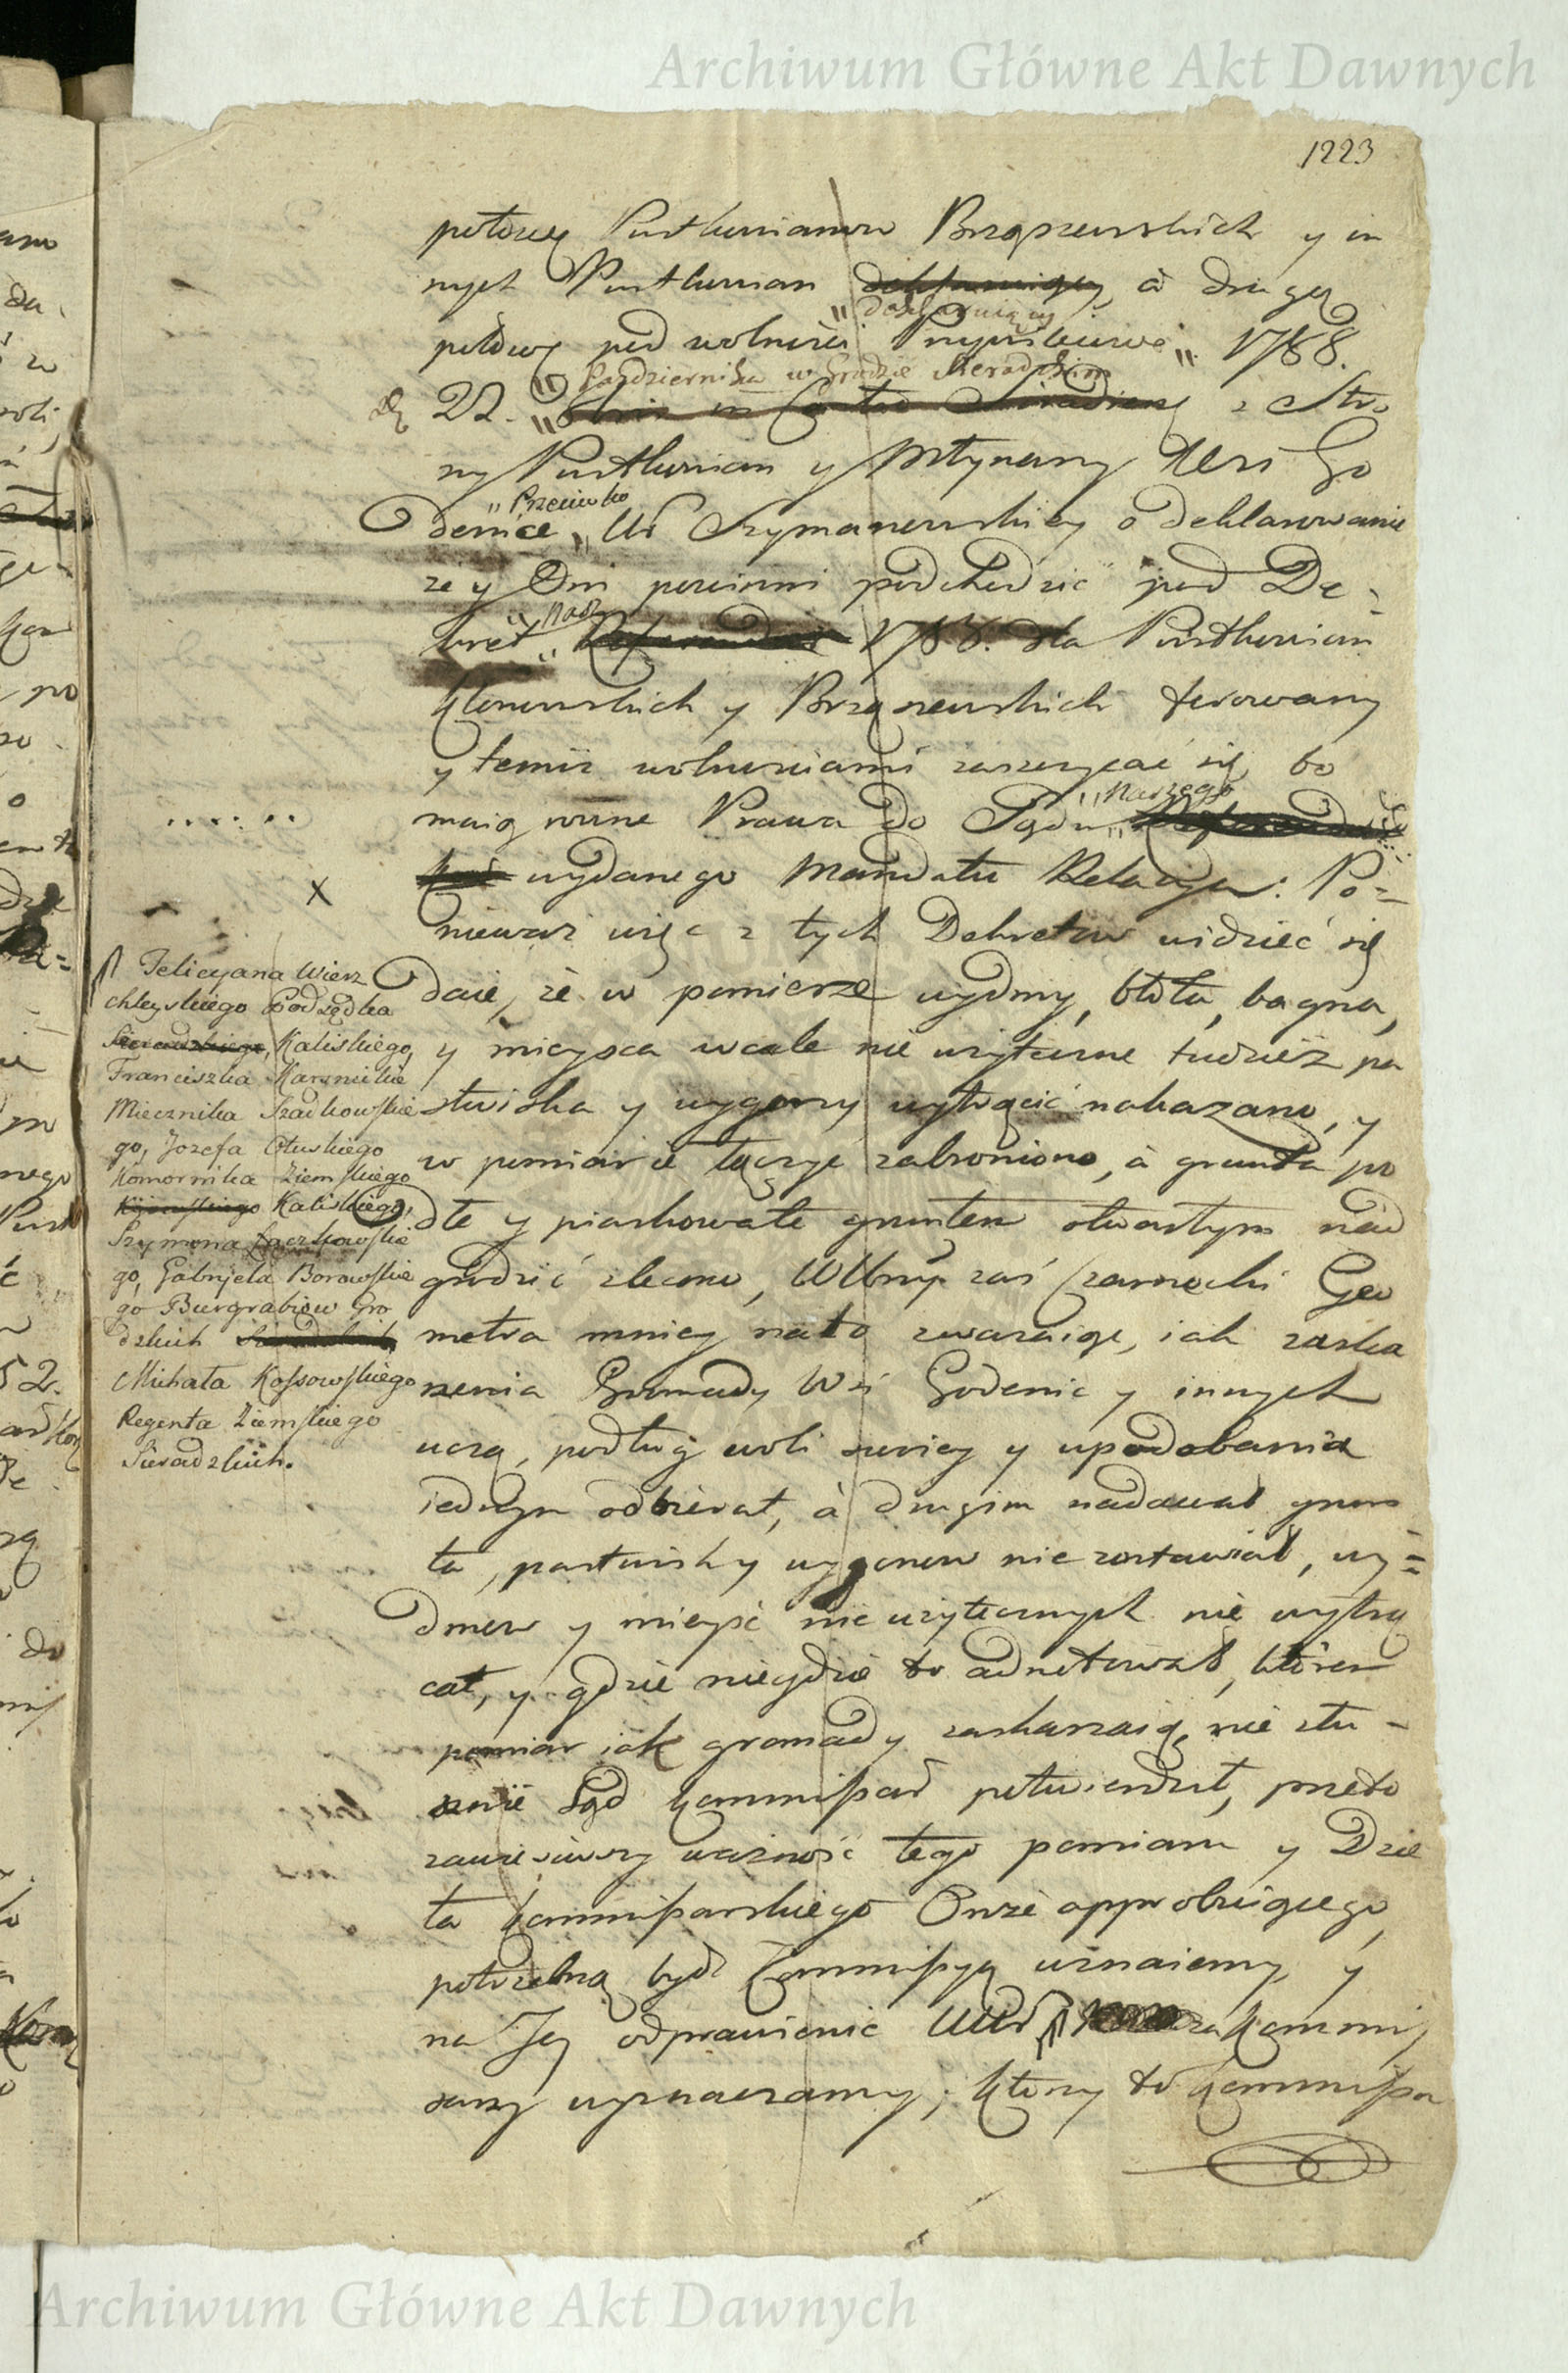 Archiwum Główne Akt Dawnych
1223
połowę Pustkowianow Brzązewskich y in
nych Pustkowian deklaruiący, à drugą
„ doklaruiący
połowę pod wolności Przywileiowe „ 1788.
„ Pazdziernika w Grodzie Sieradzkim
22. „ Octobris in Castro Siradien z Stro
ny Pustkowian y Młynarzy Wsi Go
„ Przeciwko
denice „ Ur Szymanowskiey o deklarowanie
że y Oni powinni podchodzić pod De-
„ nasz
kret „ 1786. dla Pustkowian
Klonowskich y Brzązewskich ferowany
y temiż wolnosciami zaszczycać się, bo
„ Naszego
maią rowne Prawa do Sądu „
wydanego Mandatu Relacya: Po-
nieważ więc z tych Dekretow widzieć się
daie, że w pomierze wydmy, błota, bagna,
y mieysca wcale nie użyteczne tudzież pa
stwiska y wygony wytrącić nakazano, y
w pomiarze łączyć zabroniono, à grunta po
dłe y piaskowate gruntem otwartym nad
grodzić zlecono, WUrny zaś Czarnocki Geo
metra mniey na to zważaiąc, iak zaska
rzenia Gromady Wsi Godenic y innych
uczą, podług woli swoiey y upodobania
iednym odbierał, à drugim nadawał grun
ta, pastwisk y wygonow nie zostawiał, wy=
dmow y mieysc nie użytecznych nie wytrą
cał, y gdzie niegdzie to adnotował, ktoren
pomiar iak gromady zaskarzaią, nie słu-
sznie Sąd Kommissar potwierdził, przeto
zawiesiwszy ważność tego pomiaru y Dzie
ła Kommissarskiego Onże approbuiącego,
potrzebną bydź Kommissyą uznaiemy, y
na Jey odprawienie UUr za Kommis
sarzy wyznaczamy; Ktorzy to Kommissa
X
Felicyana Wierz
chleyskiego Podsędka
Sieradzkiego, Kaliskiego,
Franciszka Karsnickie
Miecznika Szadkowskie
go, Jozefa Otuskiego
Komornika Ziemskiego
Kaliskiego,
Szymona Łaczkowskie
go, Gabryela Borowskie
go Burgrabiow Gro
dzkich Sieradzkich
Michała Kossowskiego
Regenta Ziemskiego
Sieradzkich.
Archiwum Główne Akt Dawnych